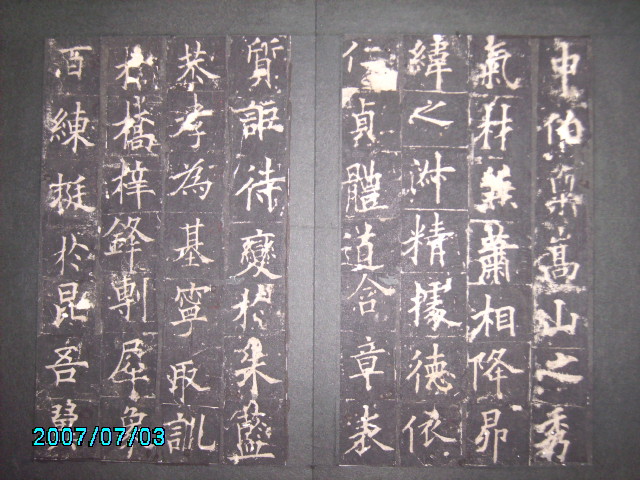 申伯稟嵩山之秀
氣材兼蕭相降昴
緯之淑精據德依
仁貞體道含章表
質詎待變於朱藍
恭孝為基寧取訓
於橋梓鋒剸犀象
百練挺於昆吾翼
2007/07/03